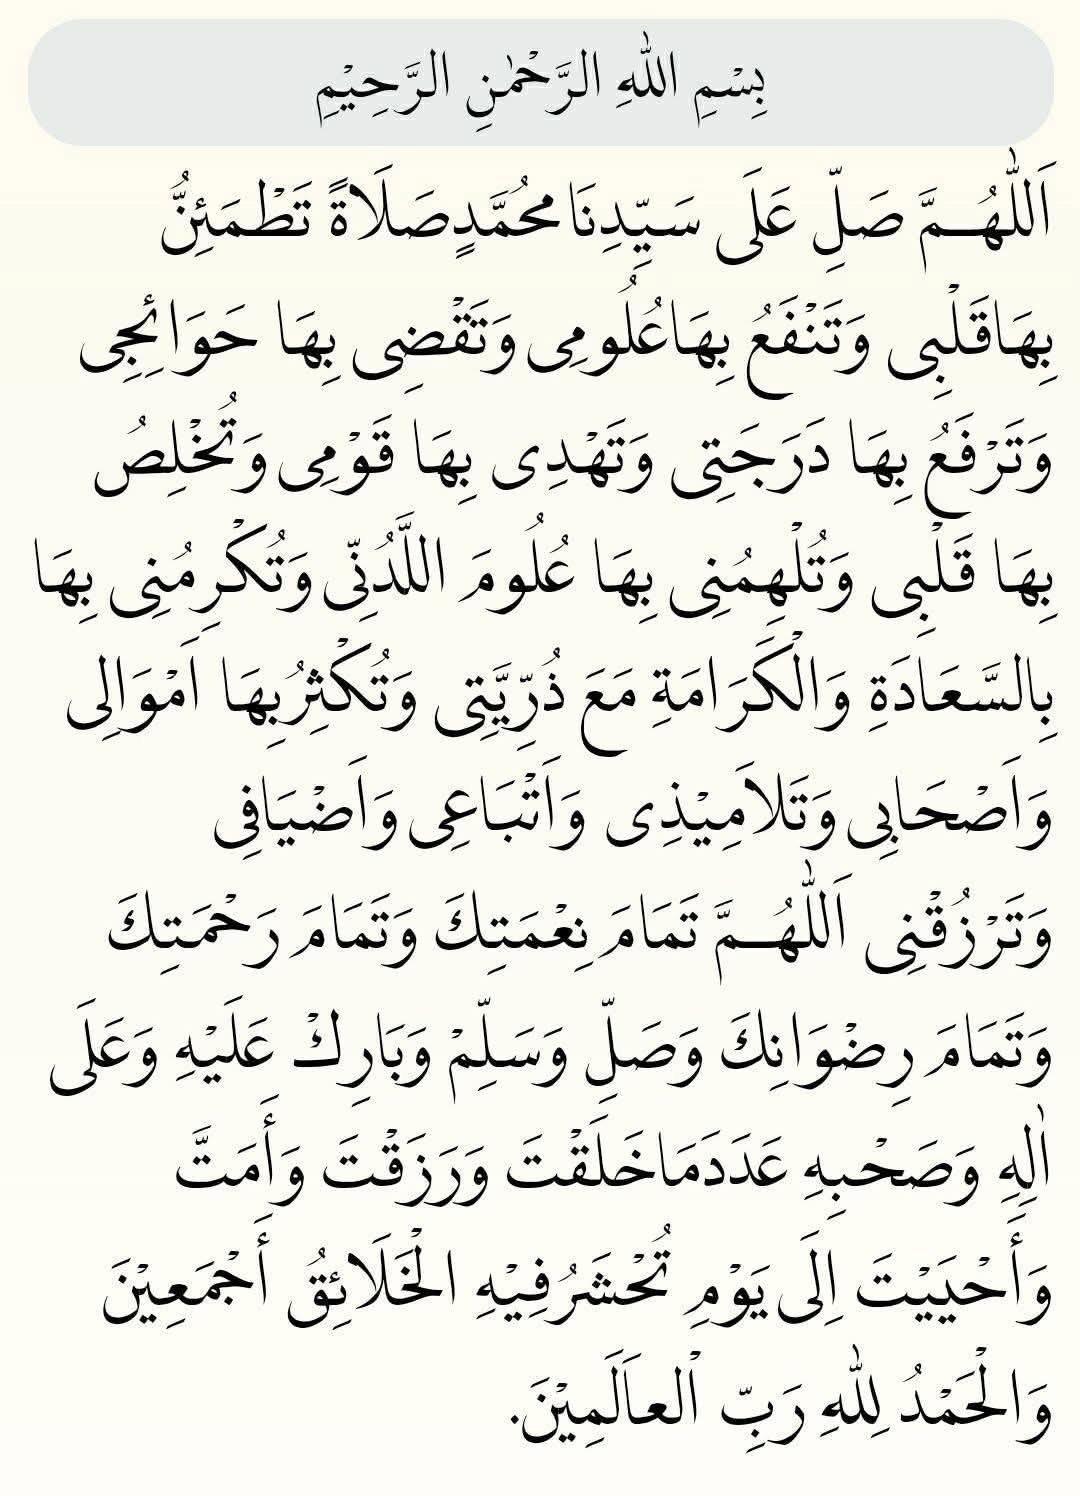 بِسْمِ اللّٰهِ الرَّحْمٰنِ الرَّحِيْمِ
اَللّٰهُمَّ صَلِّ عَلَى سَيِّدِنَا مُحَمَّدٍ صَلَاةً تَطْمَئِنُّ
بِهَا قَلْبِى وَتَنْفَعُ بِهَا عُلُومِى وَتَقْضِى بِهَا حَوَائِجِى
وَتَرْفَعُ بِهَا دَرَجَتِى وَتَهْدِى بِهَا قَوْمِى وَتُخْلِصُ
بِهَا قَلْبِى وَتُلْهِمُنِى بِهَا عُلُومَ اللَّدُنِّى وَتُكْرِمُنِى بِهَا
بِالسَّعَادَةِ وَالْكَرَامَةِ مَعَ ذُرِّيَّتِى وَتُكْثِرُ بِهَا اَمْوَالِى
وَاَصْحَابِى وَتَلَامِيْذِى وَاَتْبَاعِى وَاَضْيَافِى
وَتَرْزُقْنِى اَللّٰهُمَّ تَمَامَ نِعْمَتِكَ وَتَمَامَ رَحْمَتِكَ
وَتَمَامَ رِضْوَانِكَ وَصَلِّ وَسَلِّمْ وَبَارِكْ عَلَيْهِ وَعَلَى
اٰلِهِ وَصَحْبِهِ عَدَدَ مَا خَلَقْتَ وَرَزَقْتَ وَأَمَتَّ
وَأَحْيَيْتَ اِلَى يَوْمِ تُحْشَرُ فِيْهِ الْخَلَائِقُ أَجْمَعِيْنَ
وَالْحَمْدُ لِلّٰهِ رَبِّ الْعَالَمِيْنَ.